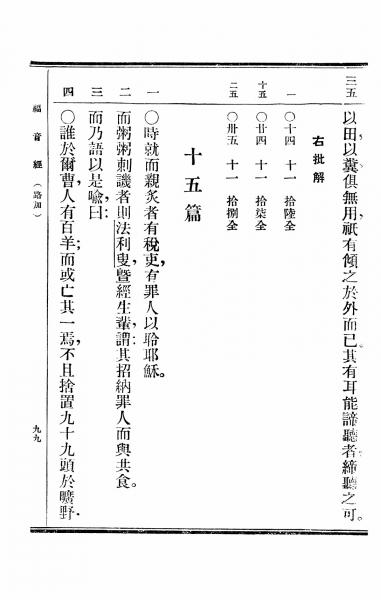 三五 以田以糞俱無用,祇有傾之於外而已其有耳能諦聽者締聽之可。
右批解
一 〇十四 十一 拾陸仝
十五 〇廿四 十一 拾柒仝
二五 〇卅五 十一 拾捌仝
十五篇
一 〇時就而親炙者有稅吏,有罪人以聆耶穌。
二 而粥粥刺譏者則法利叟,暨經生輩,謂:其招納罪人而與共食。
三 而乃語以是喻,曰:
四 〇誰於爾曹,人有百羊;而或亡其一焉,不且捨置九十九頭於曠野,
福音經(路加) 九九